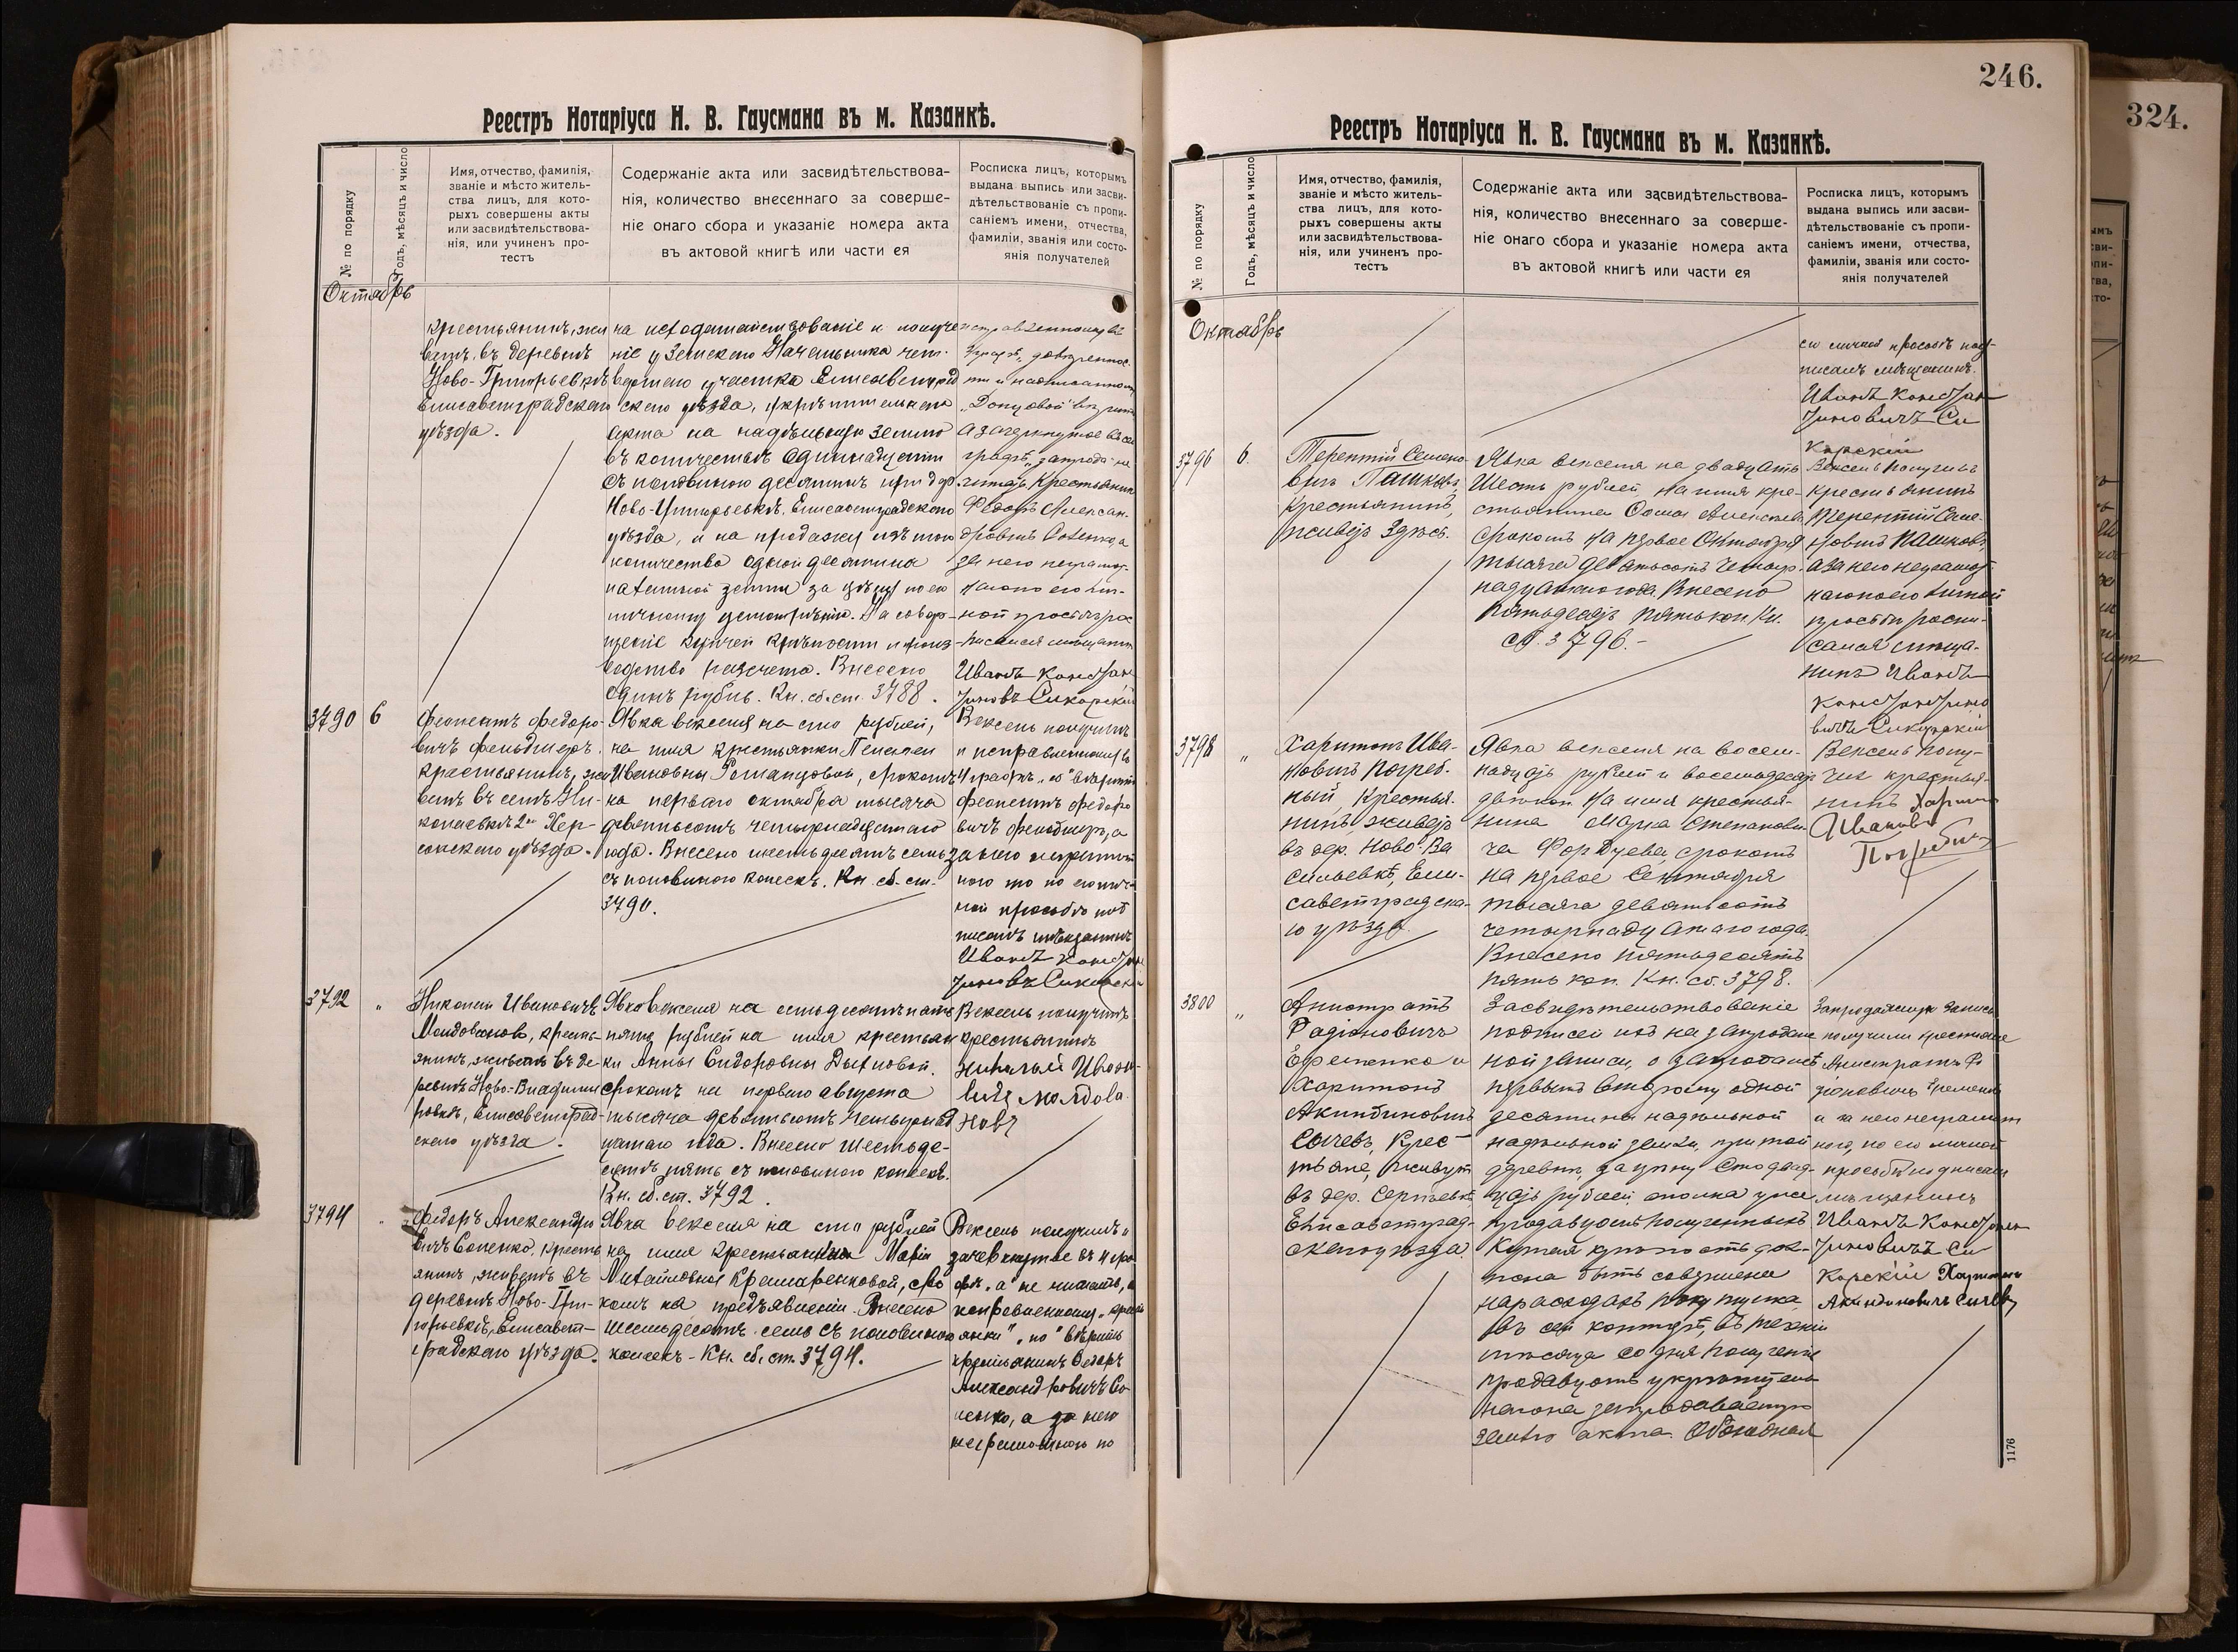 Реестръ Нотаріуса Н. В. Гаусмана въ м. Казанкѣ.
№ по порядку
Годъ, мѣсяцъ и число
Имя, отчество, фамилія,
званіе и мѣсто житель-
ства лицъ, для кото-
рыхъ совершены акты
или засвидѣтельствова-
нія, или учиненъ про-
тестъ
Содержаніе акта или засвидѣтельствова-
нія, количество внесеннаго за соверше-
ніе онаго сбора и указаніе номера акта
въ актовой книгѣ или части ея
Росписка лицъ, которымъ
выдана выпись или засви-
дѣтельствованіе съ пропи-
саніемъ имени, отчества,
фамиліи, званія или состо-
янія получателей
Октябрь
крестьянинъ, жи
ветъ въ деревнѣ
Ново-Григорьевкѣ
Елисаветградскаго
уѣзда.
на исходатайствованіе и получе
ніе у Земскаго Начальника чет-
вертаго участка Елисаветград
скаго уѣзда, укрѣпительнаго
акта на надѣльную землю
въ количествѣ одиннадцати
съ половиною десятинъ при дер.
Ново-Григорьевкѣ, Елисаветградскаго
уѣзда, и на продажу изъ того
количества одной десятины
земли за цѣну по его
личному усмотрѣнію. На совер-
шеніе купчей крѣпости и произ
водство разсчета. Внесено
Одинъ рубль. Кн. сб. ст. 3788.
а зачеркнутое
читать, Крестьянинъ
Федоръ Алексан-
дровичъ Сопенко, а
за него неграмот-
наго по его лич-
ной просьбѣ рос
писался мѣщанинъ
Иванъ Констан
тиновъ Сикорскій
3790 6
Феопентъ Федоро-
вичъ Фельдшеръ,
крестьянинъ, жи
ветъ въ селѣ Ни-
колаевкѣ 2ой Хер-
сонскаго уѣзда.
Явка векселя на сто рублей,
на имя крестьянки Пелагеи
Ивановны Романцовой, срокомъ
на перваго октября тысяча
девятьсотъ четырнадцатаго
года. Внесено шестьдесятъ семь
съ половиною копеекъ. Кн. сб. ст.
3790.
Вексель получилъ
и исправленному въ
4 графѣ вѣрить
Феопентъ Федоро
вичъ Фельдшеръ, а
за него неграмот
наго то по его лич-
ной просьбѣ под
писалъ мѣщанинъ
Иванъ Констан
тиновъ Сикорскій
3792 "
Николай Ивановичъ
Молдовановъ, кресть-
янинъ, живетъ въ де
ревнѣ Ново-Владими
ровкѣ, Елисаветград-
скаго уѣзда.
Явка векселя на семьдесятъ пять
рублей на имя крестьян
ки Анны Сидоровны
Срокомъ на перваго августа
тысяча девятьсотъ четырнад
цатаго года. Внесено шестьде-
сятъ пять съ половиною копеекъ.
Кн. сб. ст. 3792.
Вексель получилъ
крестьянинъ
Николай Ивано-
вичъ Молдова
новъ
3794 "
Федоръ Александро
вичъ Сопенко, кресть
янинъ, живетъ въ
деревнѣ Ново-Гри-
горьевкѣ, Елисавет-
градскаго уѣзда.
Явка векселя на сто рублей
на имя крестьянки Маріи
Михайловны Крамаренковой, сро
комъ на предъявленіи. Внесено
шестьдесятъ семь съ половиною
копеекъ - Кн. сб. ст. 3794.
Вексель получилъ и
зачеркнутое въ 4 гра
фѣ "а" не читать, а
вѣрить
крестьянинъ Федоръ
Александровичъ Со
пенко, а за него
неграмотнаго по
246.
Реестръ Нотаріуса Н. В. Гаусмана въ м. Казанкѣ.
№ по порядку
Годъ, мѣсяцъ и число
Имя, отчество, фамилія,
званіе и мѣсто житель-
ства лицъ, для кото-
рыхъ совершены акты
или засвидѣтельствова-
нія, или учиненъ про-
тестъ
Содержаніе акта или засвидѣтельствова-
нія, количество внесеннаго за соверше-
ніе онаго сбора и указаніе номера акта
въ актовой книгѣ или части ея
Росписка лицъ, которымъ
выдана выпись или засви-
дѣтельствованіе съ пропи-
саніемъ имени, отчества,
фамиліи, званія или состо-
янія получателей
Октябрь
его личной просьбѣ под-
писалъ мѣщанинъ
Иванъ Констан
тиновичъ Си
корскій
3796 6.
Терентій Семено-
вичъ Пашковъ,
крестьянинъ,
живетъ здѣсь.
Явка векселя на двадцать
шесть рублей, на имя кре-
стьянина
срокомъ на первое Октября
тысяча девятьсотъ четыр-
надцатаго года. Внесено
пятьдесятъ пять коп. Кн.
ст. 3796.-
Вексель получилъ
крестьянинъ
Терентій Семе-
новичъ Пашковъ,
а за него неграмот-
наго по его личной
просьбѣ роспи-
сался мѣща-
нинъ Иванъ
Константино
вичъ Сикорскій
3798 "
Харитонъ Ива-
новичъ Погреб-
ный, Крестья-
нинъ, живетъ
въ дер. Ново-Ва
сильевкѣ, Ели-
саветградска-
го уѣзда.
Явка векселя на восем-
надцать рублей и восемьдесятъ
на имя крестья-
нина Марка Степанови-
ча Фордуева, срокомъ
на первое Сентября
тысяча девятьсотъ
четырнадцатаго года.
Внесено пятьдесятъ
пять коп. Кн. сб. 3798.
Вексель полу-
чилъ крестья-
нинъ Харитонъ
Ивановъ
Погребный
3800 "
Анистратъ
Радіоновичъ
Еременко и
Харитонъ
Акиндиновичъ
Сычевъ, крес-
тьяне, живутъ
въ дер. Сергѣевкѣ
Елисаветград-
скаго уѣзда.
Засвидѣтельствованіе
подписей ихъ на запродаж
ной записи, о запродажѣ
первымъ второму одной
десятины надѣльной
надѣльной земли, при той
деревнѣ, за цѣну Сто двад-
цать рублей, сполна уже
продавцомъ полученныхъ
Купчая крѣпость дол-
жна быть совершена
на расходахъ покупщика,
въ сей конторѣ, въ теченіи
мѣсяца со дня полученія
продавцомъ укрѣпитель
наго на запродаваемую
землю акта.
Запродажную запись
получили крестьяне
Анистратъ Ра
діоновичъ Еременко
и за него неграмот
наго, по его личной
просьбѣ подписалъ
мѣщанинъ
Иванъ Констан
тиновичъ Си
корскій Харитонъ
Акиндиновичъ Сычевъ
1176
324.